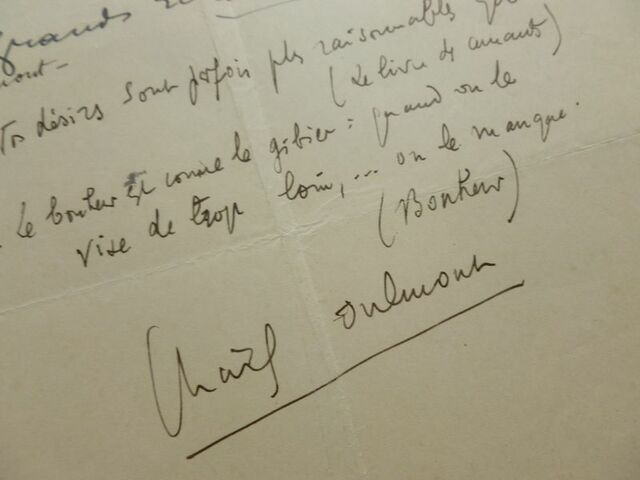 grands
mont-
Nos désirs sont parfois plus raisonnables que
(Le livre des amants)
Le bonheur est comme le gibier : quand on le
vise de trop loin, ... on le manque.
(Bonheur)
Charles Oulmont